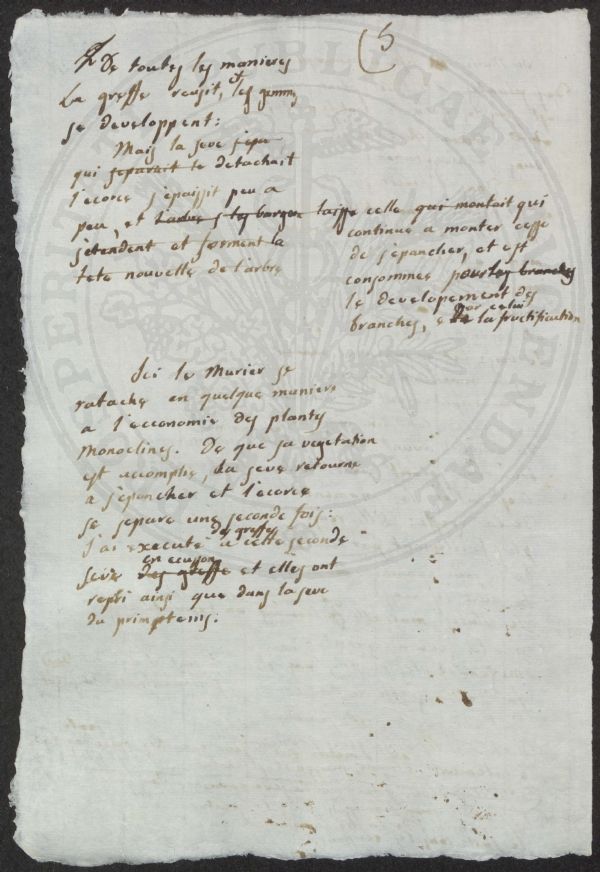 (5
De toutes les manieres
La greffe reusit, et les gemmes
se developpent:
Mais la seve s'epa
qui separait te detachait
l'ecorce s'epaissit peu a
peu, et l'arbre s les bourgeo laisse celle qui montait qui
s'etendent et forment la
tete nouvelle de l'arbre
continue a monter cesse
de s'epancher, et est
consommée pour les branches
le developement des
branches, e par celui De la fructification
Ici le Murier se
ratache en quelque maniere
a l'economie des plantes
Monoclines. De que sa vegetation
est accomplie, La seve retourne
a s'epancher et l'ecorce
se separe une seconde fois:
J'ai executé des greffes a cette seconde
seve en ecusson des greffe et elles ont
repri ainsi que dans la seve
du primptems.